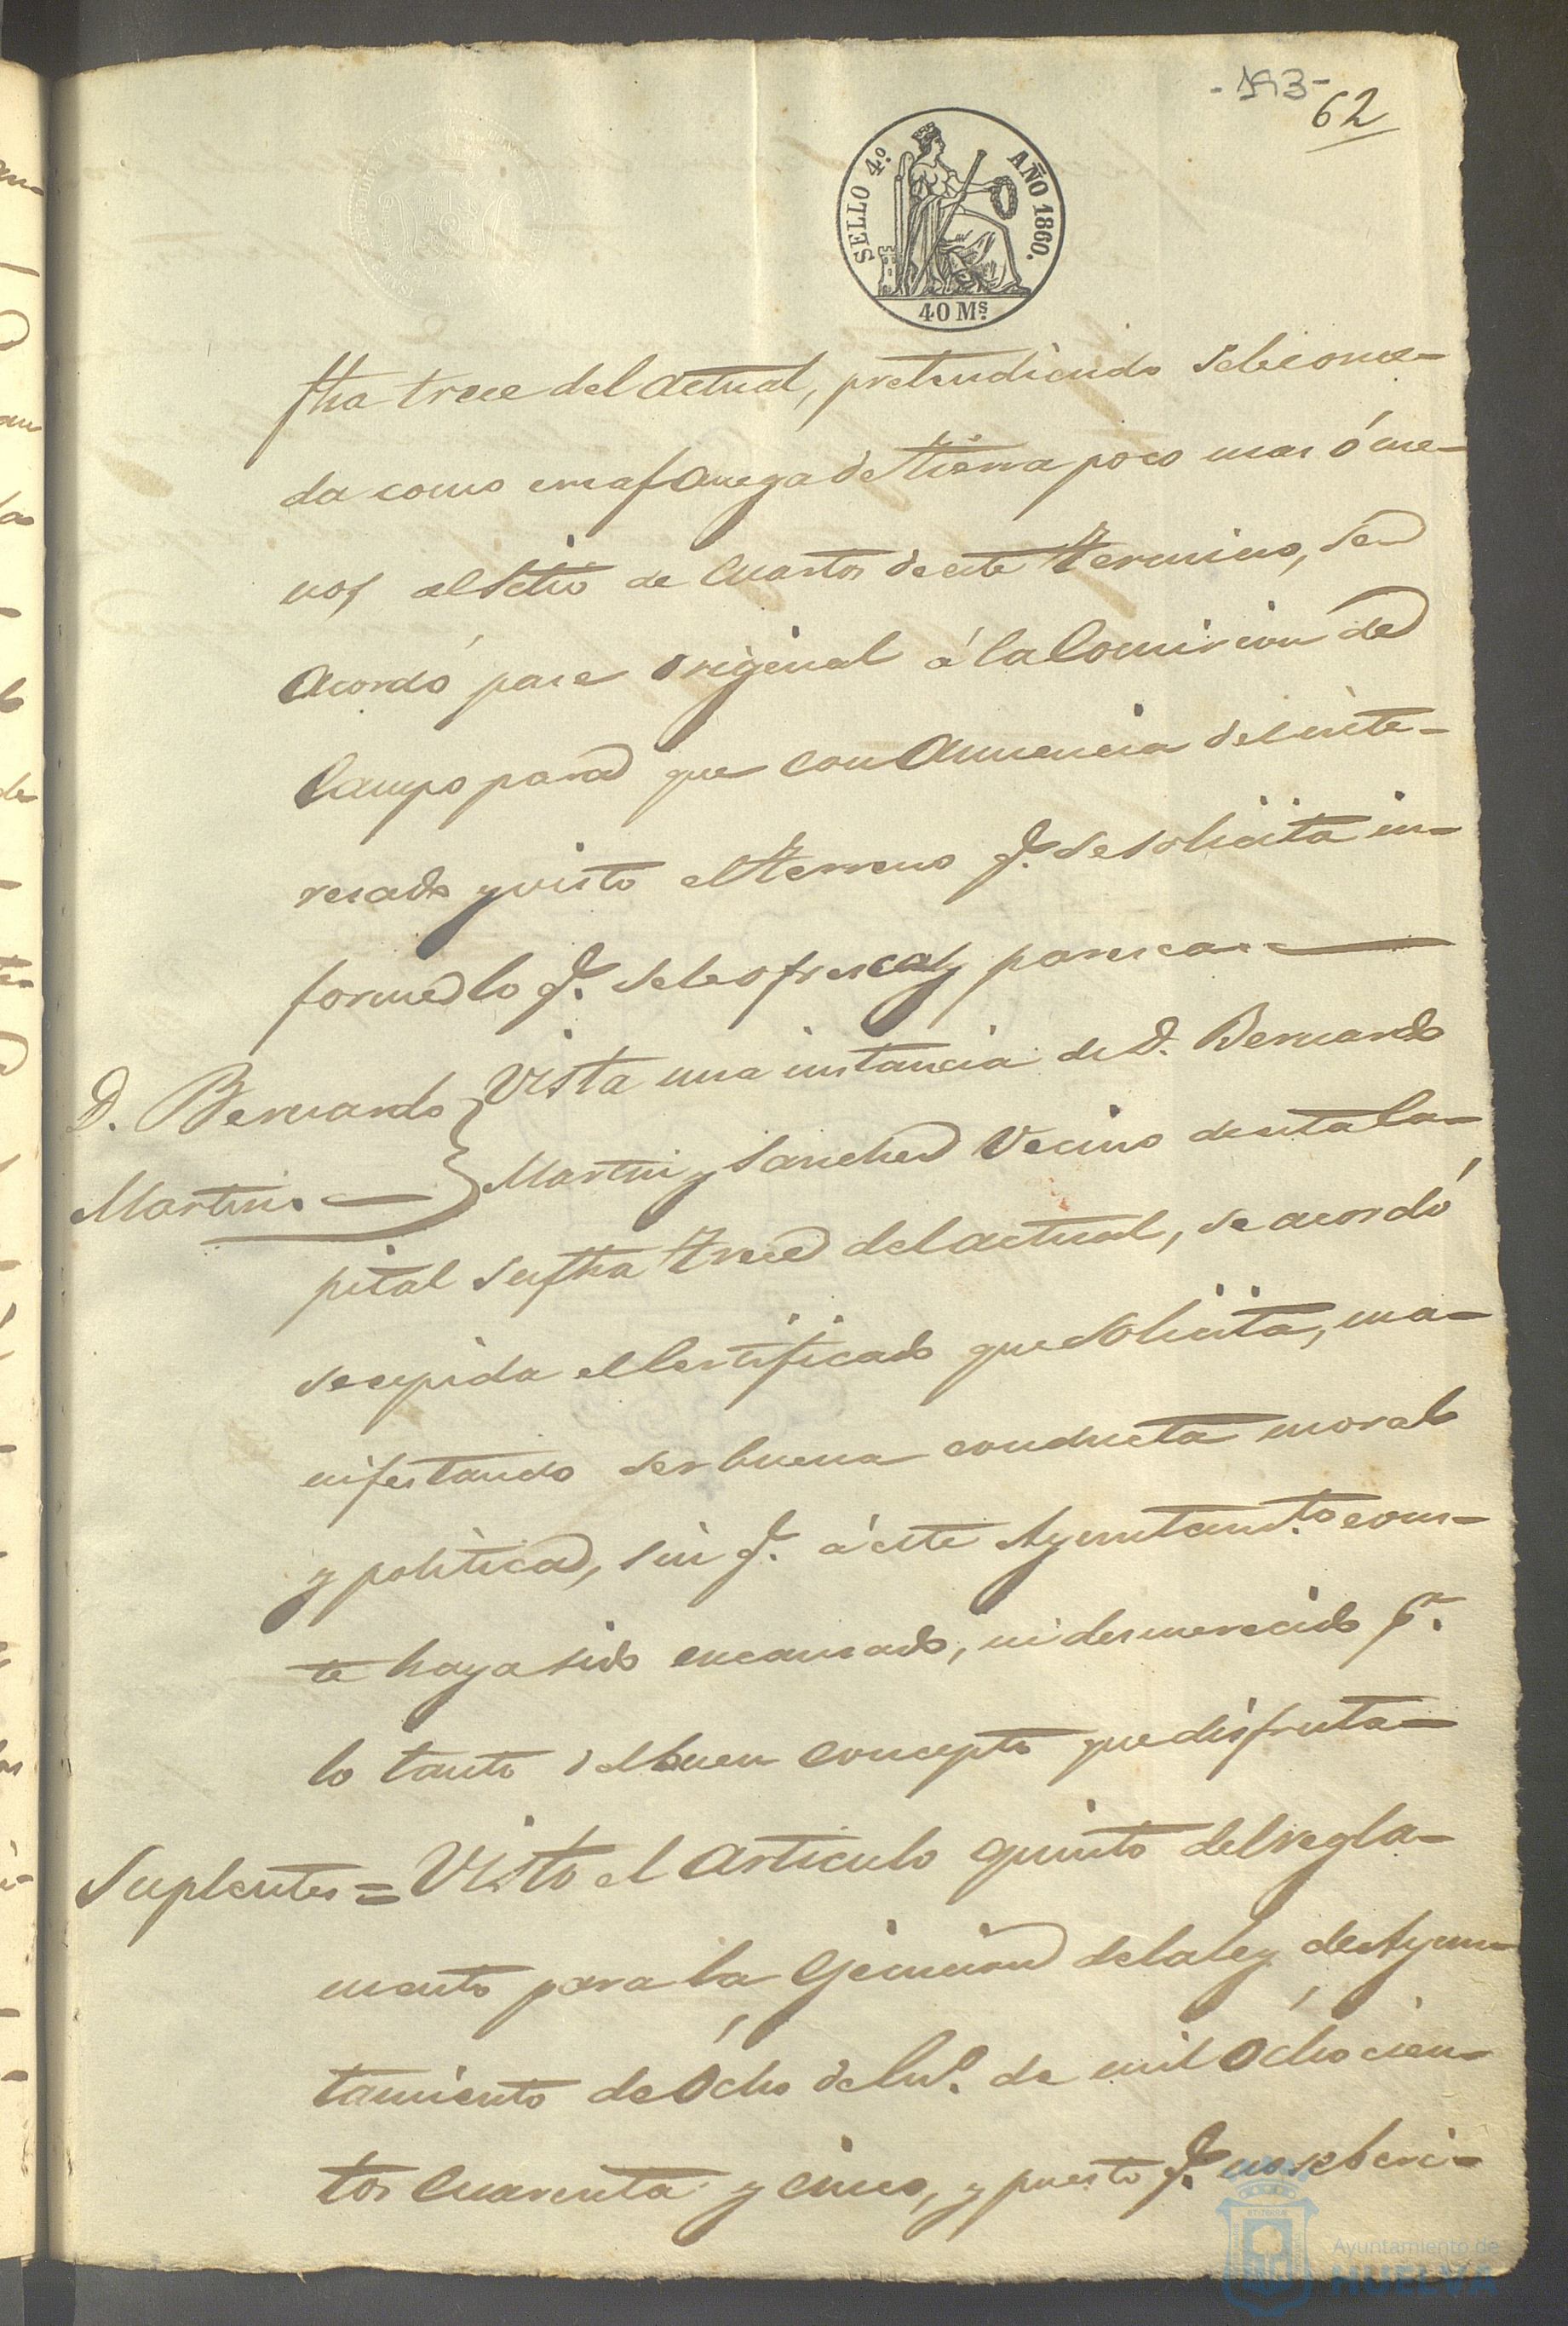 -193-
62
SELLO 4.º AÑO 1860.
40 Ms.
fha trece del actual, pretendiendo se le conce-
da como una fanega de tierra poco mas ó me-
nos al sitio de Cuartos de este termino, se
acordó pase original á la Comision de
Campo para que con anuencia del inte-
resado y visto el terreno q.e se solicita in-
forme lo q.e se le ofresca y paresca
D. Bernardo
Martin
Vista una instancia de D. Bernardo
Martin y Sanchez vecino de esta Ca-
pital su fha trece del actual, se acordó
se espida el Certificado que solicita, ma-
nifestando ser buena conducta moral
y politica, sin q.e á este Ayuntam.to cons-
te haya sido encausado, ni desmerecido p.r
lo tanto del buen concepto que disfruta
Suplentes = Visto el articulo quinto del regla-
mento para la ejecucion de la ley de Ayun-
tamiento de ócho de En.º de mil ochocien-
tos cuarenta y cinco, y puesto q.e no se
Ayuntamiento de
HUELVA